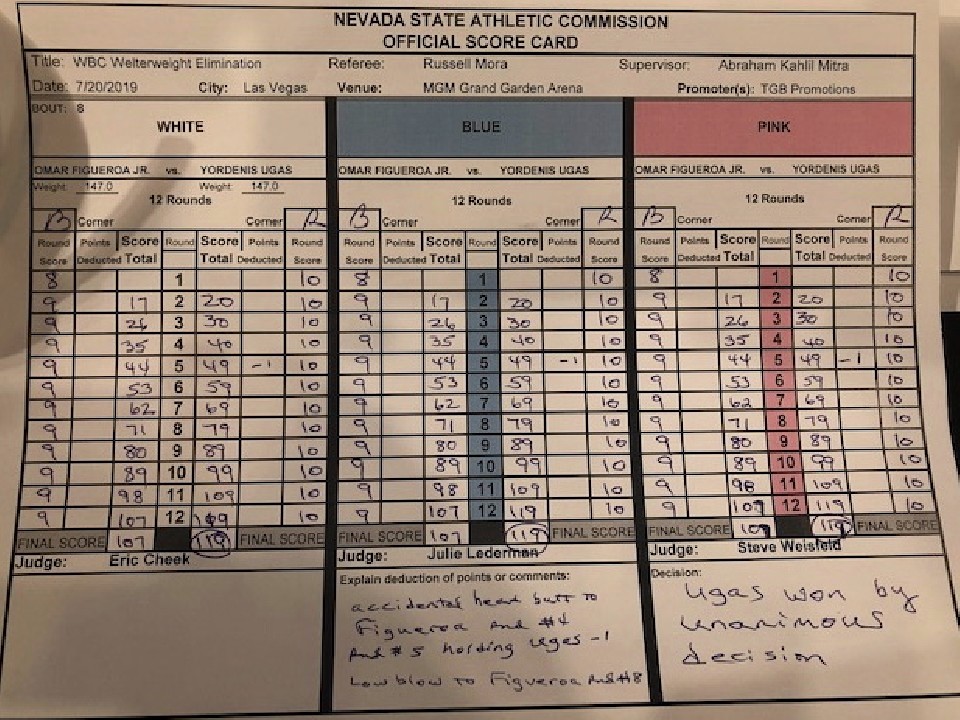 NEVADA STATE ATHLETIC COMMISSION
OFFICIAL SCORE CARD
Title: WBC Welterweight Elimination Referee: Russell Mora Supervisor: Abraham Kahlil Mitra
Date: 7/20/2019 City: Las Vegas Venue: MGM Grand Garden Arena Promoter(s): TGB Promotions
BOUT: 8
WHITE BLUE PINK
OMAR FIGUEROA JR. vs. YORDENIS UGAS OMAR FIGUEROA JR. vs. YORDENIS UGAS OMAR FIGUEROA JR. vs. YORDENIS UGAS
Weight: 147.0 Weight: 147.0
12 Rounds 12 Rounds 12 Rounds
B Corner Corner R B Corner Corner R B Corner Corner R
Round Points Score Round Score Points Round Round Points Score Round Score Points Round Round Points Score Round Score Points Round
Score Deducted Total Total Deducted Score Score Deducted Total Total Deducted Score Score Deducted Total Total Deducted Score
8 1 10 8 1 10 8 1 10
9 17 2 20 10 9 17 2 20 10 9 17 2 20 10
9 26 3 30 10 9 26 3 30 10 9 26 3 30 10
9 35 4 40 10 9 35 4 40 10 9 35 4 40 10
9 44 5 49 -1 10 9 44 5 49 -1 10 9 44 5 49 -1 10
9 53 6 59 10 9 53 6 59 10 9 53 6 59 10
9 62 7 69 10 9 62 7 69 10 9 62 7 69 10
9 71 8 79 10 9 71 8 79 10 9 71 8 79 10
9 80 9 89 10 9 80 9 89 10 9 80 9 89 10
9 89 10 99 10 9 89 10 99 10 9 89 10 99 10
9 98 11 109 10 9 98 11 109 10 9 98 11 109 10
9 107 12 119 10 9 107 12 119 10 9 107 12 119 10
FINAL SCORE 107 119 FINAL SCORE FINAL SCORE 107 119 FINAL SCORE FINAL SCORE 107 119 FINAL SCORE
Judge: Eric Cheek Judge: Julie Lederman Judge: Steve Weisfeld
Explain deduction of points or comments:
accidental head butt to
Figueroa Rnd #4
Rnd #5 holding Ugas -1
Low blow to Figueroa Rnd #8
Decision:
Ugas won by
unanimous
decision